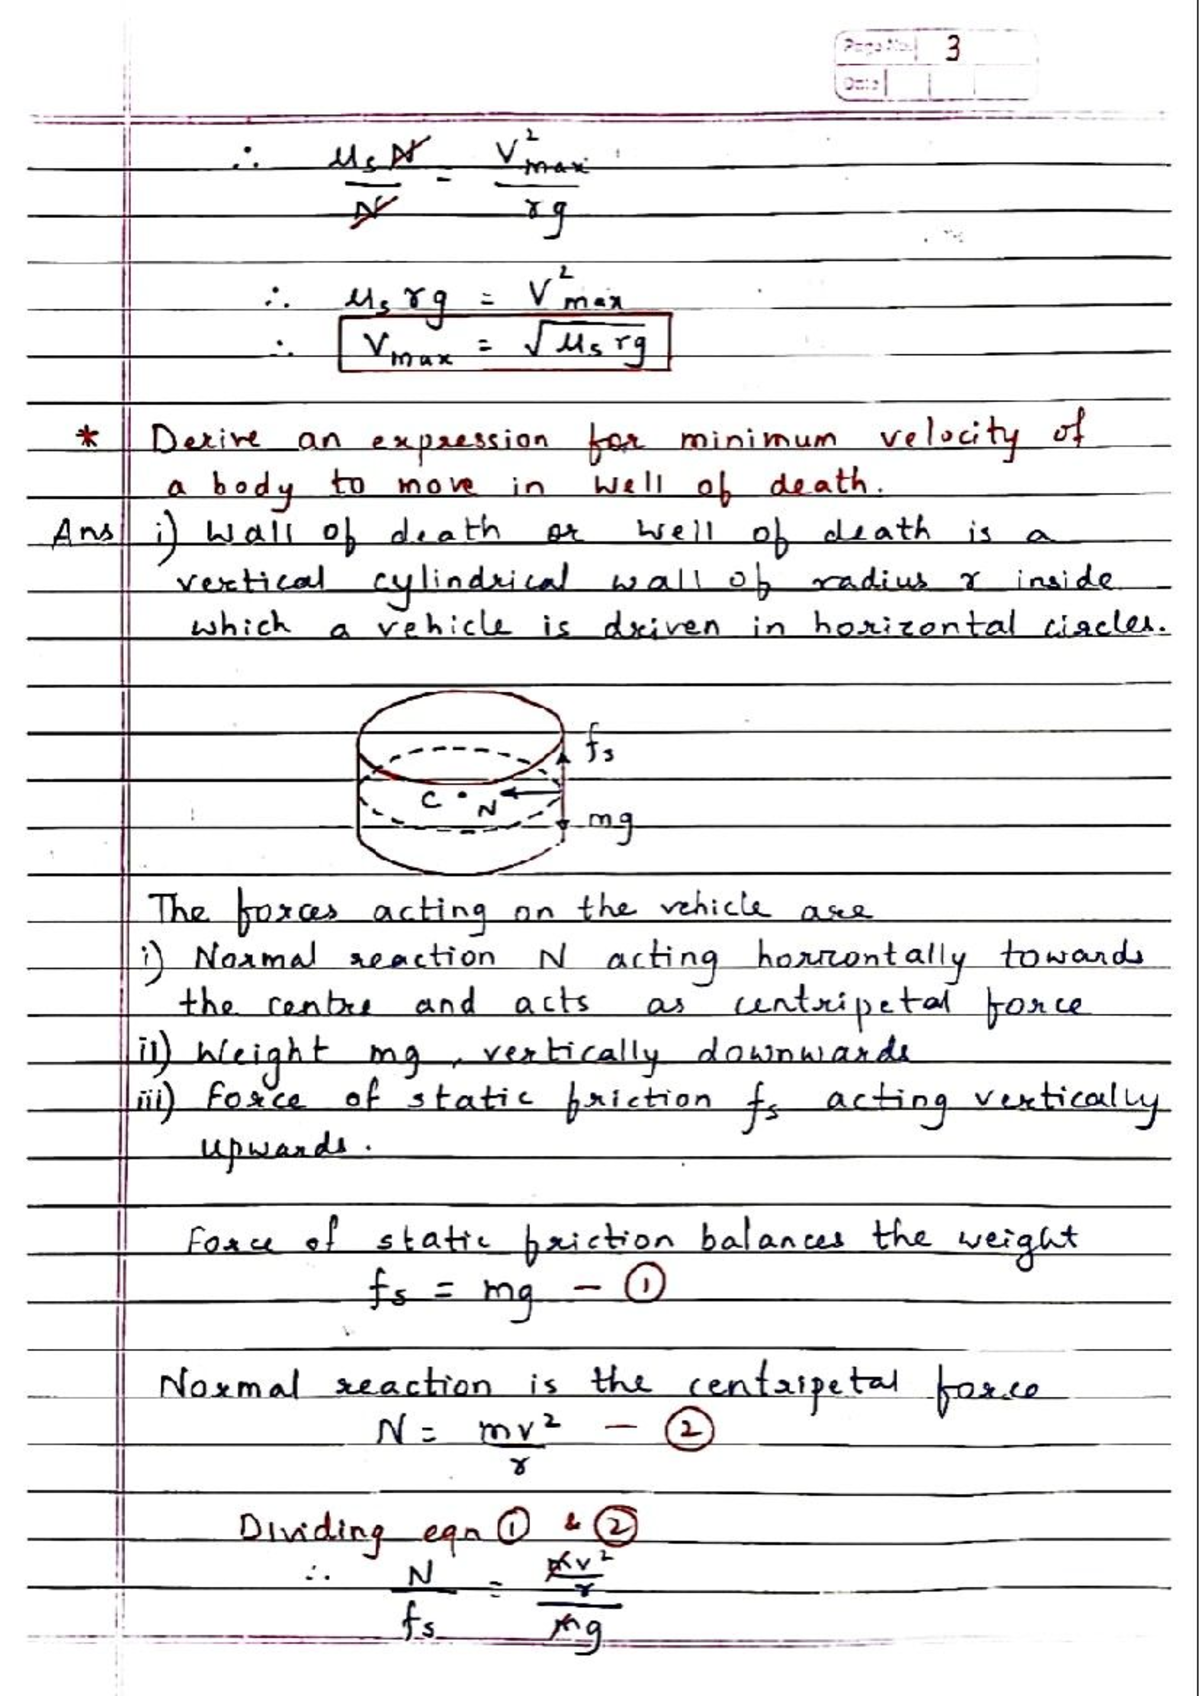 Page No. 3
Date
∴ μsN/N = V²max/rg
∴ μs rg = V²max
∴ Vmax = √μs rg
* Derive an expression for minimum velocity of
a body to move in well of death.
Ans i) Wall of death or well of death is a
vertical cylindrical wall of radius r inside
which a vehicle is driven in horizontal circles.
fs
C • N
mg
The forces acting on the vehicle are
i) Normal reaction N acting horizontally towards
the centre and acts as centripetal force
ii) Weight mg, vertically downwards
iii) Force of static friction fs acting vertically
upwards.
Force of static friction balances the weight
fs = mg – ①
Normal reaction is the centripetal force
N = mv²/r – ②
Dividing eqn ① & ②
∴ N/fs = (mv²/r)/mg